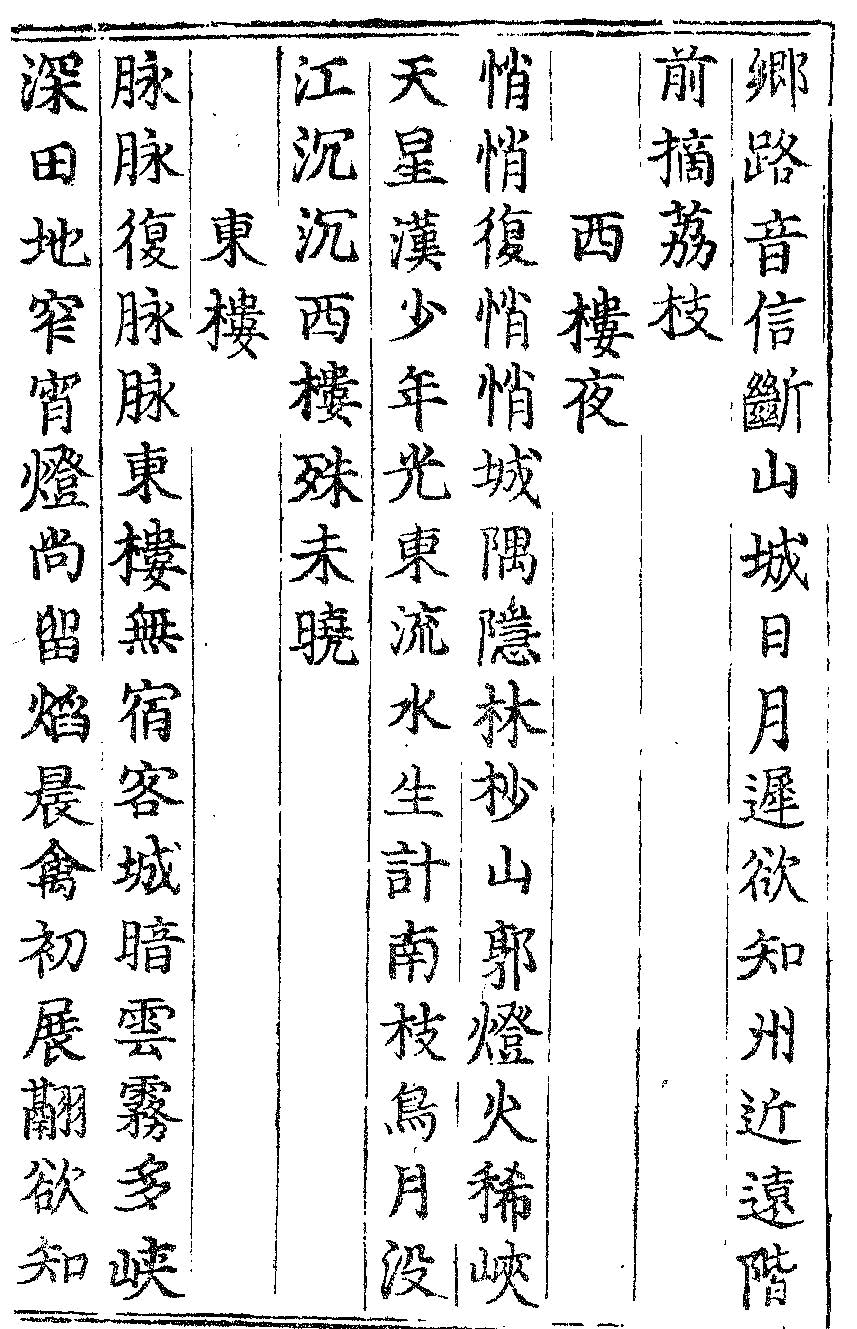 鄉路音信斷山城日月遲欲知州近遠階
前摘荔枝
西樓夜
悄悄復悄悄城隅隱林杪山郭燈火稀峽
天星漢少年光東流水生計南枝鳥月没
江沉沉西樓殊未曉
東樓
脉脉復脉脉東樓無宿客城暗雲霧多峽
深田地窄宵燈尚留焰晨禽初展翮欲知